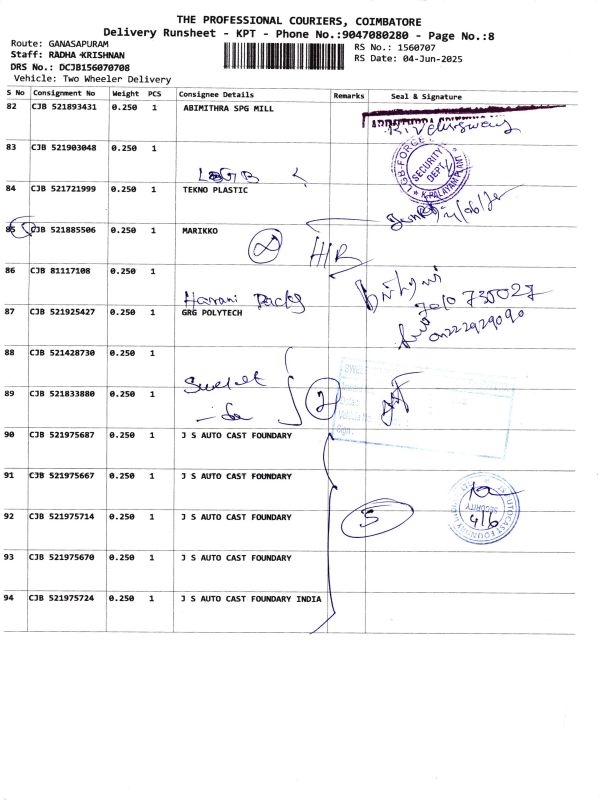 THE PROFESSIONAL COURIERS, COIMBATORE
Delivery Runsheet - KPT - Phone No.:9047080280 - Page No.:8
Route: GANASAPURAM
RS No.: 1560707
Staff: RADHA KRISHNAN
RS Date: 04-Jun-2025
DRS No.: DCJB156070708
Vehicle: Two Wheeler Delivery
S No Consignment No Weight PCS Consignee Details Remarks Seal & Signature
82 CJB 521893431 0.250 1 ABIMITHRA SPG MILL
83 CJB 521903048 0.250 1
LGB
LGB-FORGE
SECURITY
DEPT
K.PALAYAM PLANT
84 CJB 521721999 0.250 1 TEKNO PLASTIC
85 CJB 521885506 0.250 1 MARIKKO
86 CJB 81117108 0.250 1
Harani Packs
87 CJB 521925427 0.250 1 GRG POLYTECH
88 CJB 521428730 0.250 1
89 CJB 521833880 0.250 1
2
90 CJB 521975687 0.250 1 J S AUTO CAST FOUNDARY
91 CJB 521975667 0.250 1 J S AUTO CAST FOUNDARY
92 CJB 521975714 0.250 1 J S AUTO CAST FOUNDARY
5
SECURITY
4/6
93 CJB 521975670 0.250 1 J S AUTO CAST FOUNDARY
94 CJB 521975724 0.250 1 J S AUTO CAST FOUNDARY INDIA